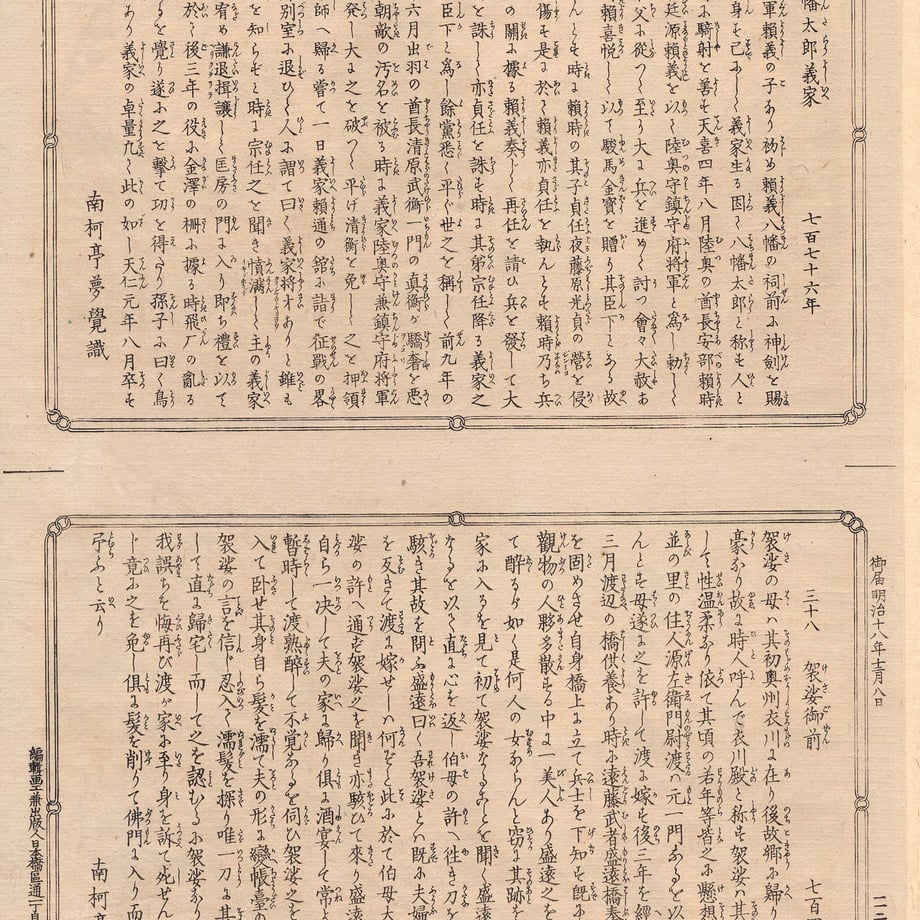 幡太郎義家 七百七十六年
軍賴義の子なり初め賴義八幡の祠前に神劍を賜
身も已に義家生る因て八幡太郎と称す人と
に騎射を善す天喜四年八月陸奥の酋長安部賴時
廷源賴義を以て陸奥守鎮守府将軍と為し勅し
父に從つて至り大に兵を進めて討つ會々大赦あ
賴喜悦して以て駿馬金寳を贈り其臣下となる故
んとす時に賴時の其子貞任夜藤原光貞の營を侵
傷す是に於て賴義亦貞任を執んとす賴時乃ち兵
の關に據る賴義奏して再任を請ひ兵を發して大
を誅し亦貞任を誅す時に其弟宗任降る義家之
臣下と為し餘黨悉く平ぐ世之を稱して前九年の
六月出羽の酋長清原武衡一門の真衡が驕奢を悪
朝敵の汚名を被る時に義家陸奥守兼鎮守府将軍
発し大に之を破つて平げ清衡を免して之を押領
師へ歸る嘗て一日義家賴通の舘に詣で征戰の畧
別室に退ひて人に謂て曰く義家将才ありと雖も
を知らずと時に宗任之を聞き憤懣して主の義家
宥め謙退揖讓して匡房の門に入り即ち禮を以て
於て後三年の役に金澤の柵に據る時飛厂の亂る
るを覺り遂に之を擊て功を得たり孫子に曰く鳥
あり義家の卓量凡て此の如し天仁元年八月卒す
南柯亭夢覺識
御届明治十八年十二月八日
三十八 袈裟御前 七百
袈裟の母ハ其初奥州衣川に在り後故郷に歸り
豪なり故に時人呼んで衣川殿と称す袈裟ハ其
して性温柔なり依て其頃の若年等皆之に懸想
並の里の住人源左衛門尉渡ハ元一門なるを以
んとす母遂に之を許して渡に嫁す後三年を經
三月渡辺の橋供養あり時に遠藤武者盛遠橋奉
を固めさせ自身橋上に立て兵士を下知す既に
觀物の人夥多散ずる中に一美人あり盛遠之を
て醉るが如く是何人の女ならんと窃に其跡を
家に入るを見て初て袈裟なることを聞く盛遠
なるを以て直に心を返し伯母の許へ徃き刀を
駭き其故を問ふ盛遠曰く吾袈裟とハ既に夫婦
を反きて渡に嫁せしハ何ぞと此に於て伯母大
裟の許へ通ず袈裟之を聞き亦駭ひて來り盛遠
自ら一决して夫の家に歸り俱に酒宴して常よ
暫時して渡熟醉して不覚なるを伺ひ袈裟之を
入て卧せ其身自ら髪を濡て夫の形に変帳臺の
袈裟の言を信じ忍入て濡髪を探り唯一刀に其
して直に歸宅し而して之を認むるに袈裟なり
我誤ちを悔再び渡が家に至り身を訴て死せん
じ竟に之を免し俱に髪を削りて佛門に入り而
予ふと云り
南柯
編輯画工兼出版人日本橋區通一丁目